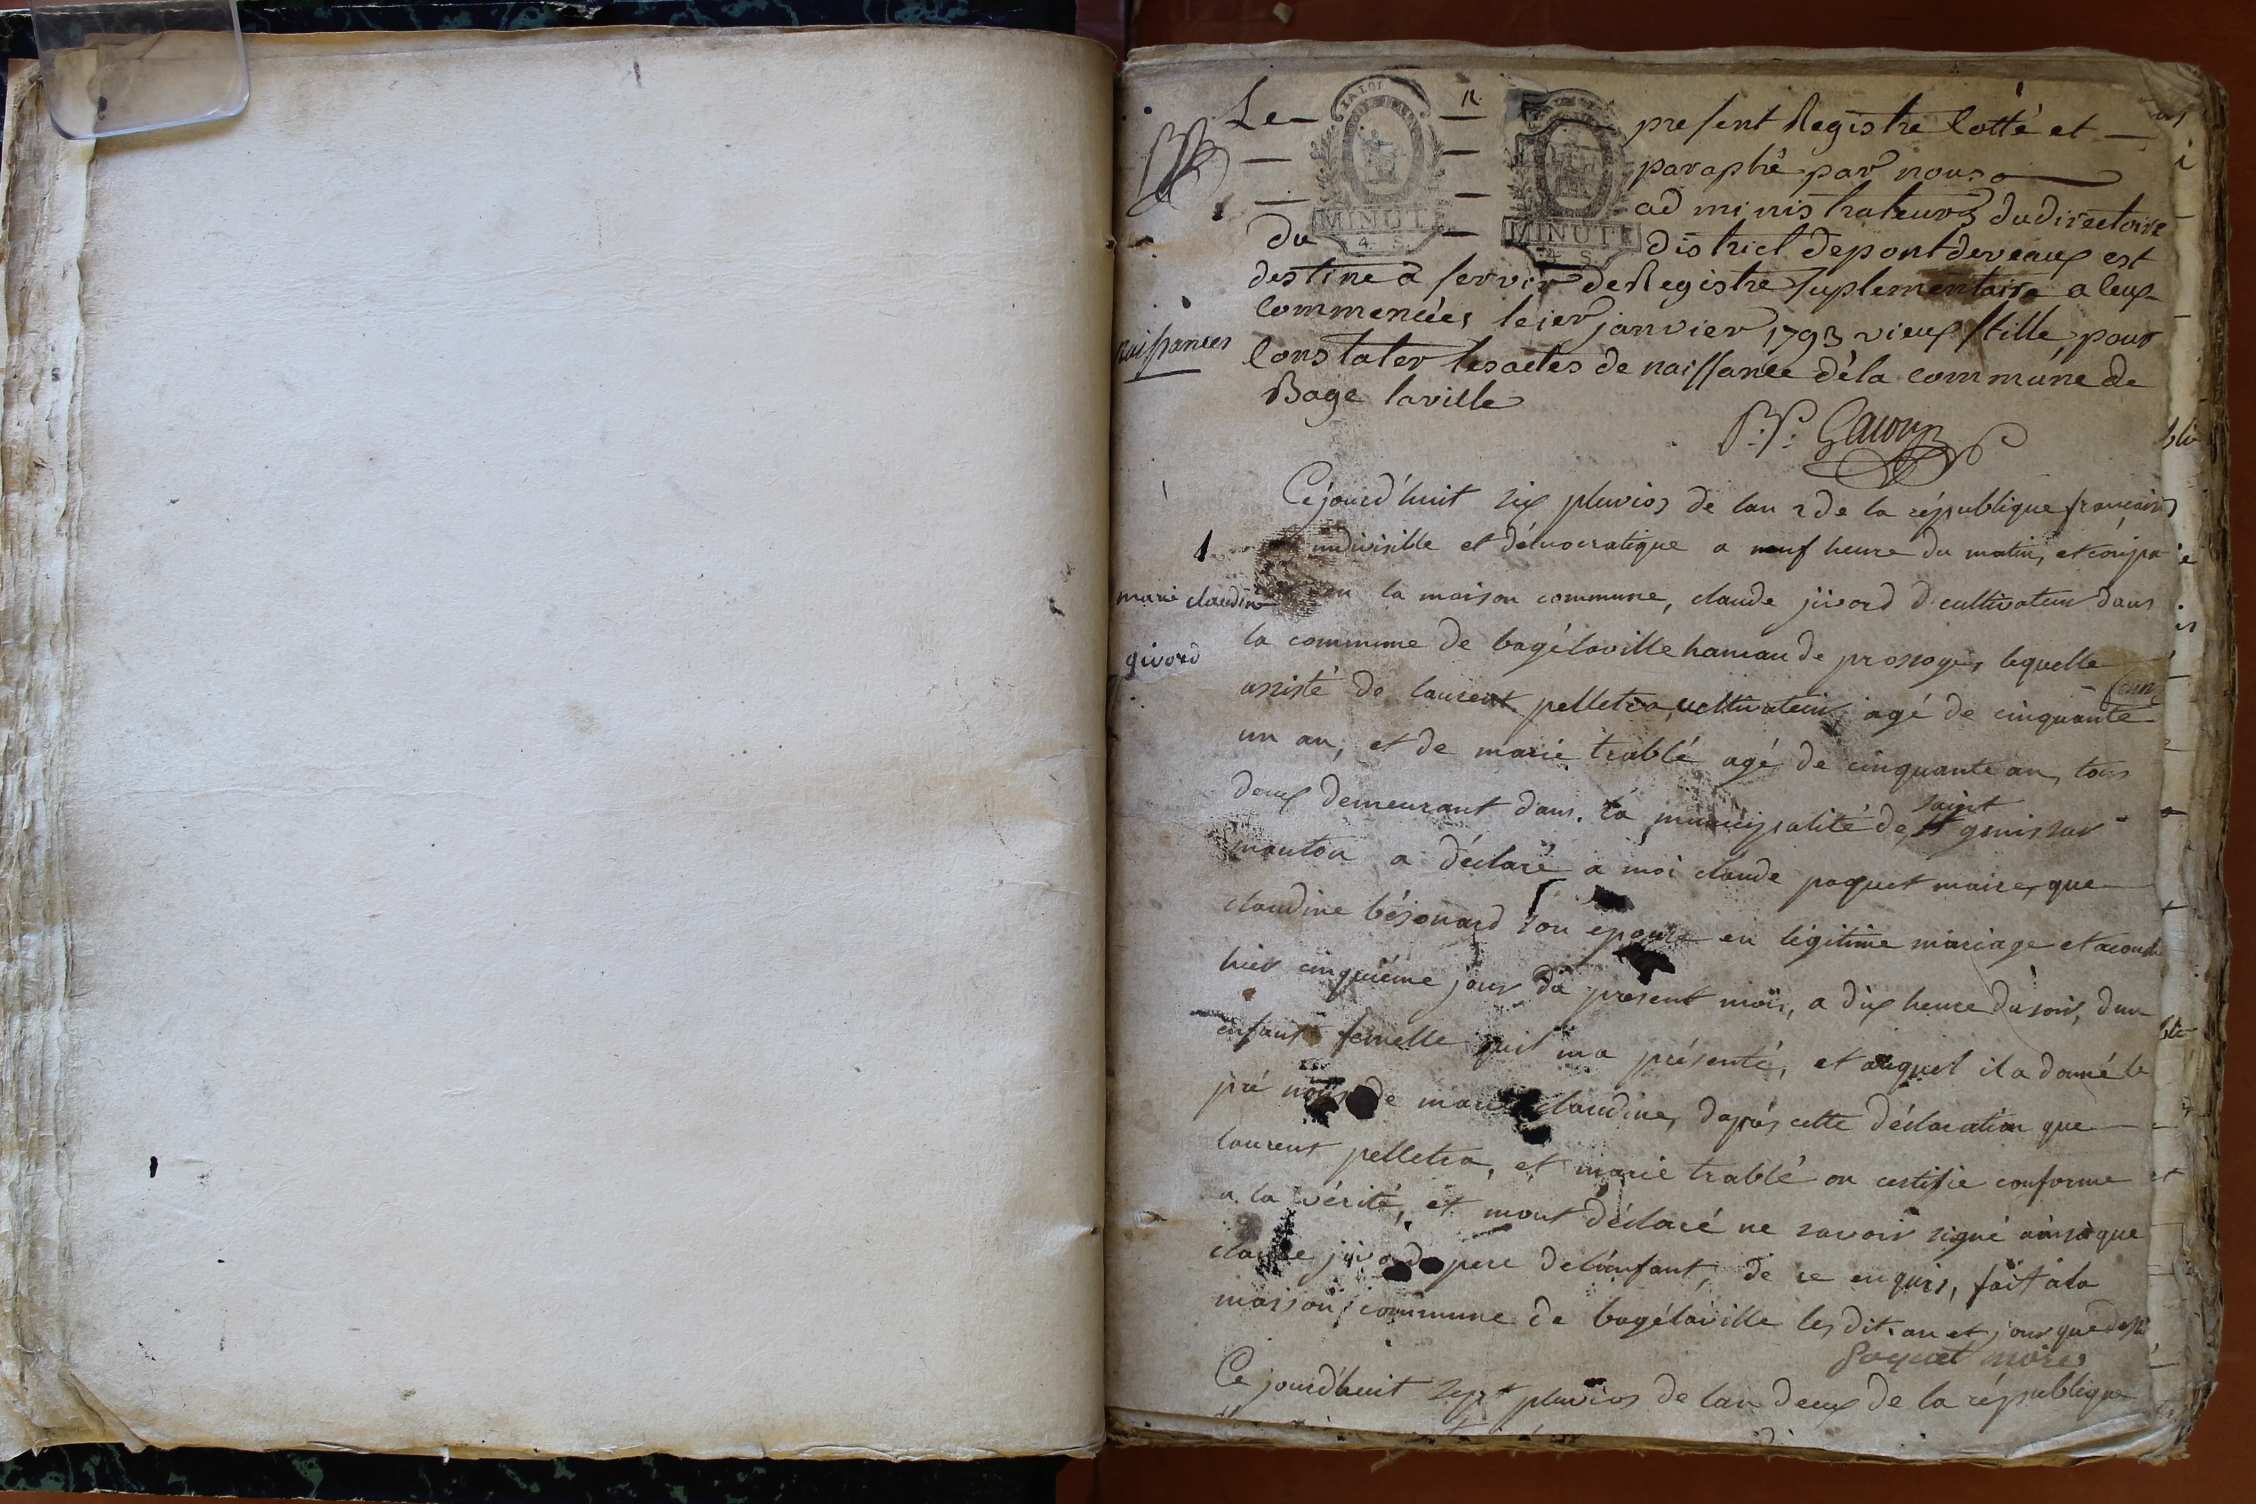 Le present Registre Cotté et
paraphé par nous
administrateurs du directoire
du district de pont deveaux est
destiné a servir de Registre suplementaire a ceux
commencées le 1er janvier 1793 vieux stille, pour
Constater les actes de naissance de la commune de
Bagé laville
naissances
Ce jourd'huit six pluvios de lan 2 de la république francaises
1
indivisible et démocratique a neuf heure du matin, et compa
marie claudine
en la maison commune, claude jivord cultivateur dans
givord
la commune de bagélaville hameau de prossoye, lequelle
assisté de laurent pelletra, cultivateur agé de cinquante
un an, et de marie trablé agé de cinquante an, tous
deux demeurant dans la municipalité de saint genis sur
mantou a déclaré a moi claude paquet maire, que
claudine bésonard son epouse en légitime mariage et acouché
hier cinquième jour du present mois, a dix heure du soir, dun
enfant femelle quil ma présenté, et auquel il a donné le
pré nom de marie claudine, dapres cette déclaration que
laurent pelletra, et marie trablé on certifie conforme
a la vérité, et mont déclaré ne savoir signé ainsi que
claude jivord pere de lenfant, de ce enquis, fait a la
maison commune de bagélaville les dit an et jour que dessus
paquet maire
Ce jourd'huit sept pluvios de lan deux de la république
LA LOI
MINUTE
4 S.
MINUTE
4 S.